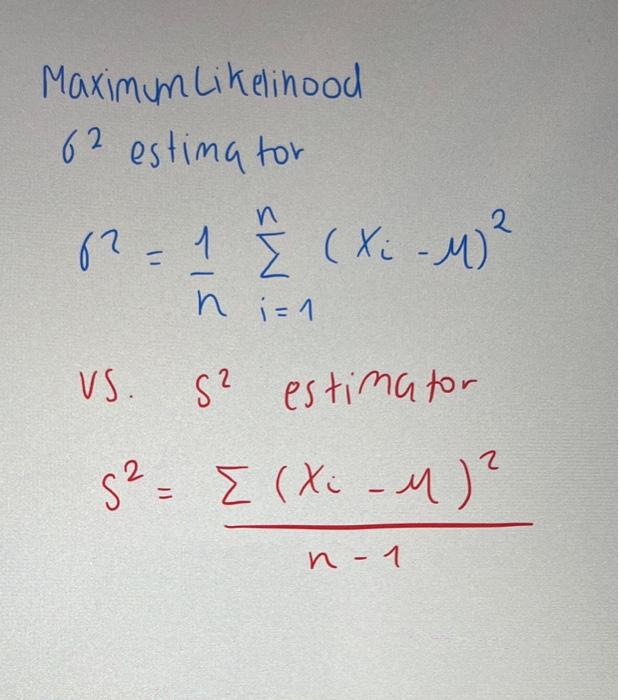 Maximum Likelihood
σ² estimator
σ² = 1/n n∑i=1 (Xi - μ)²
VS. S² estimator
S² = ∑ (Xi - μ)² / n - 1